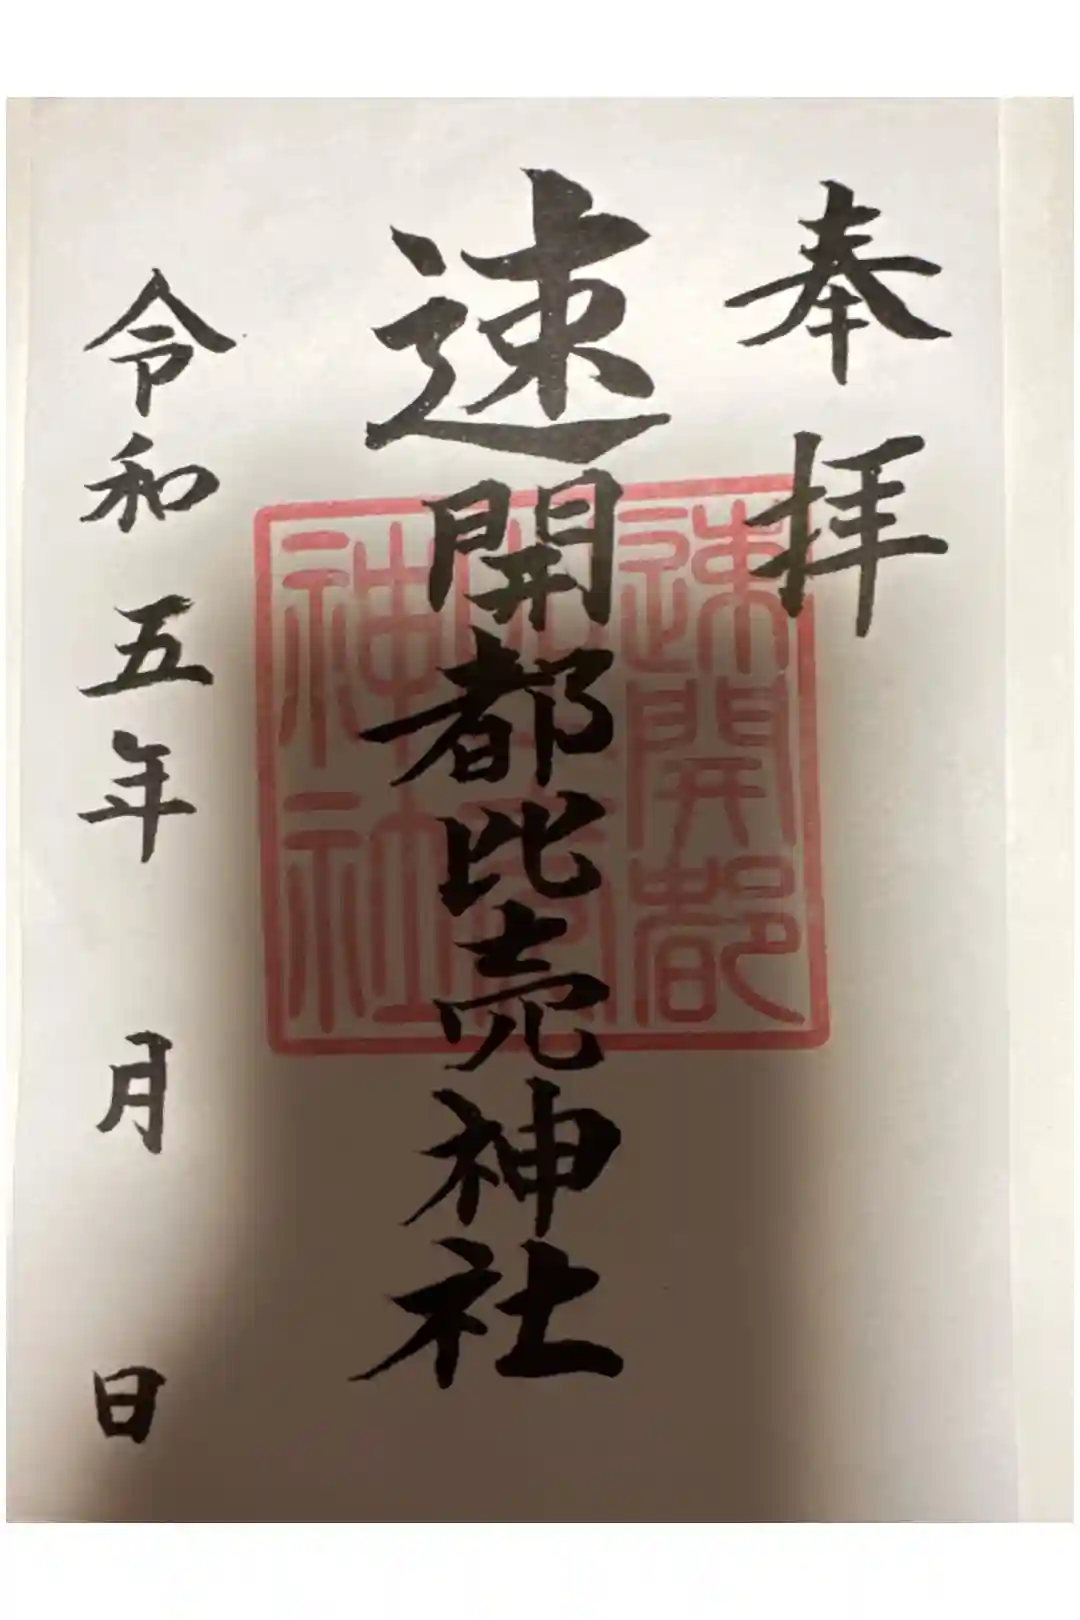 奉拝
速開都比売神社
速開都
比売
神社
令和五年 月 日